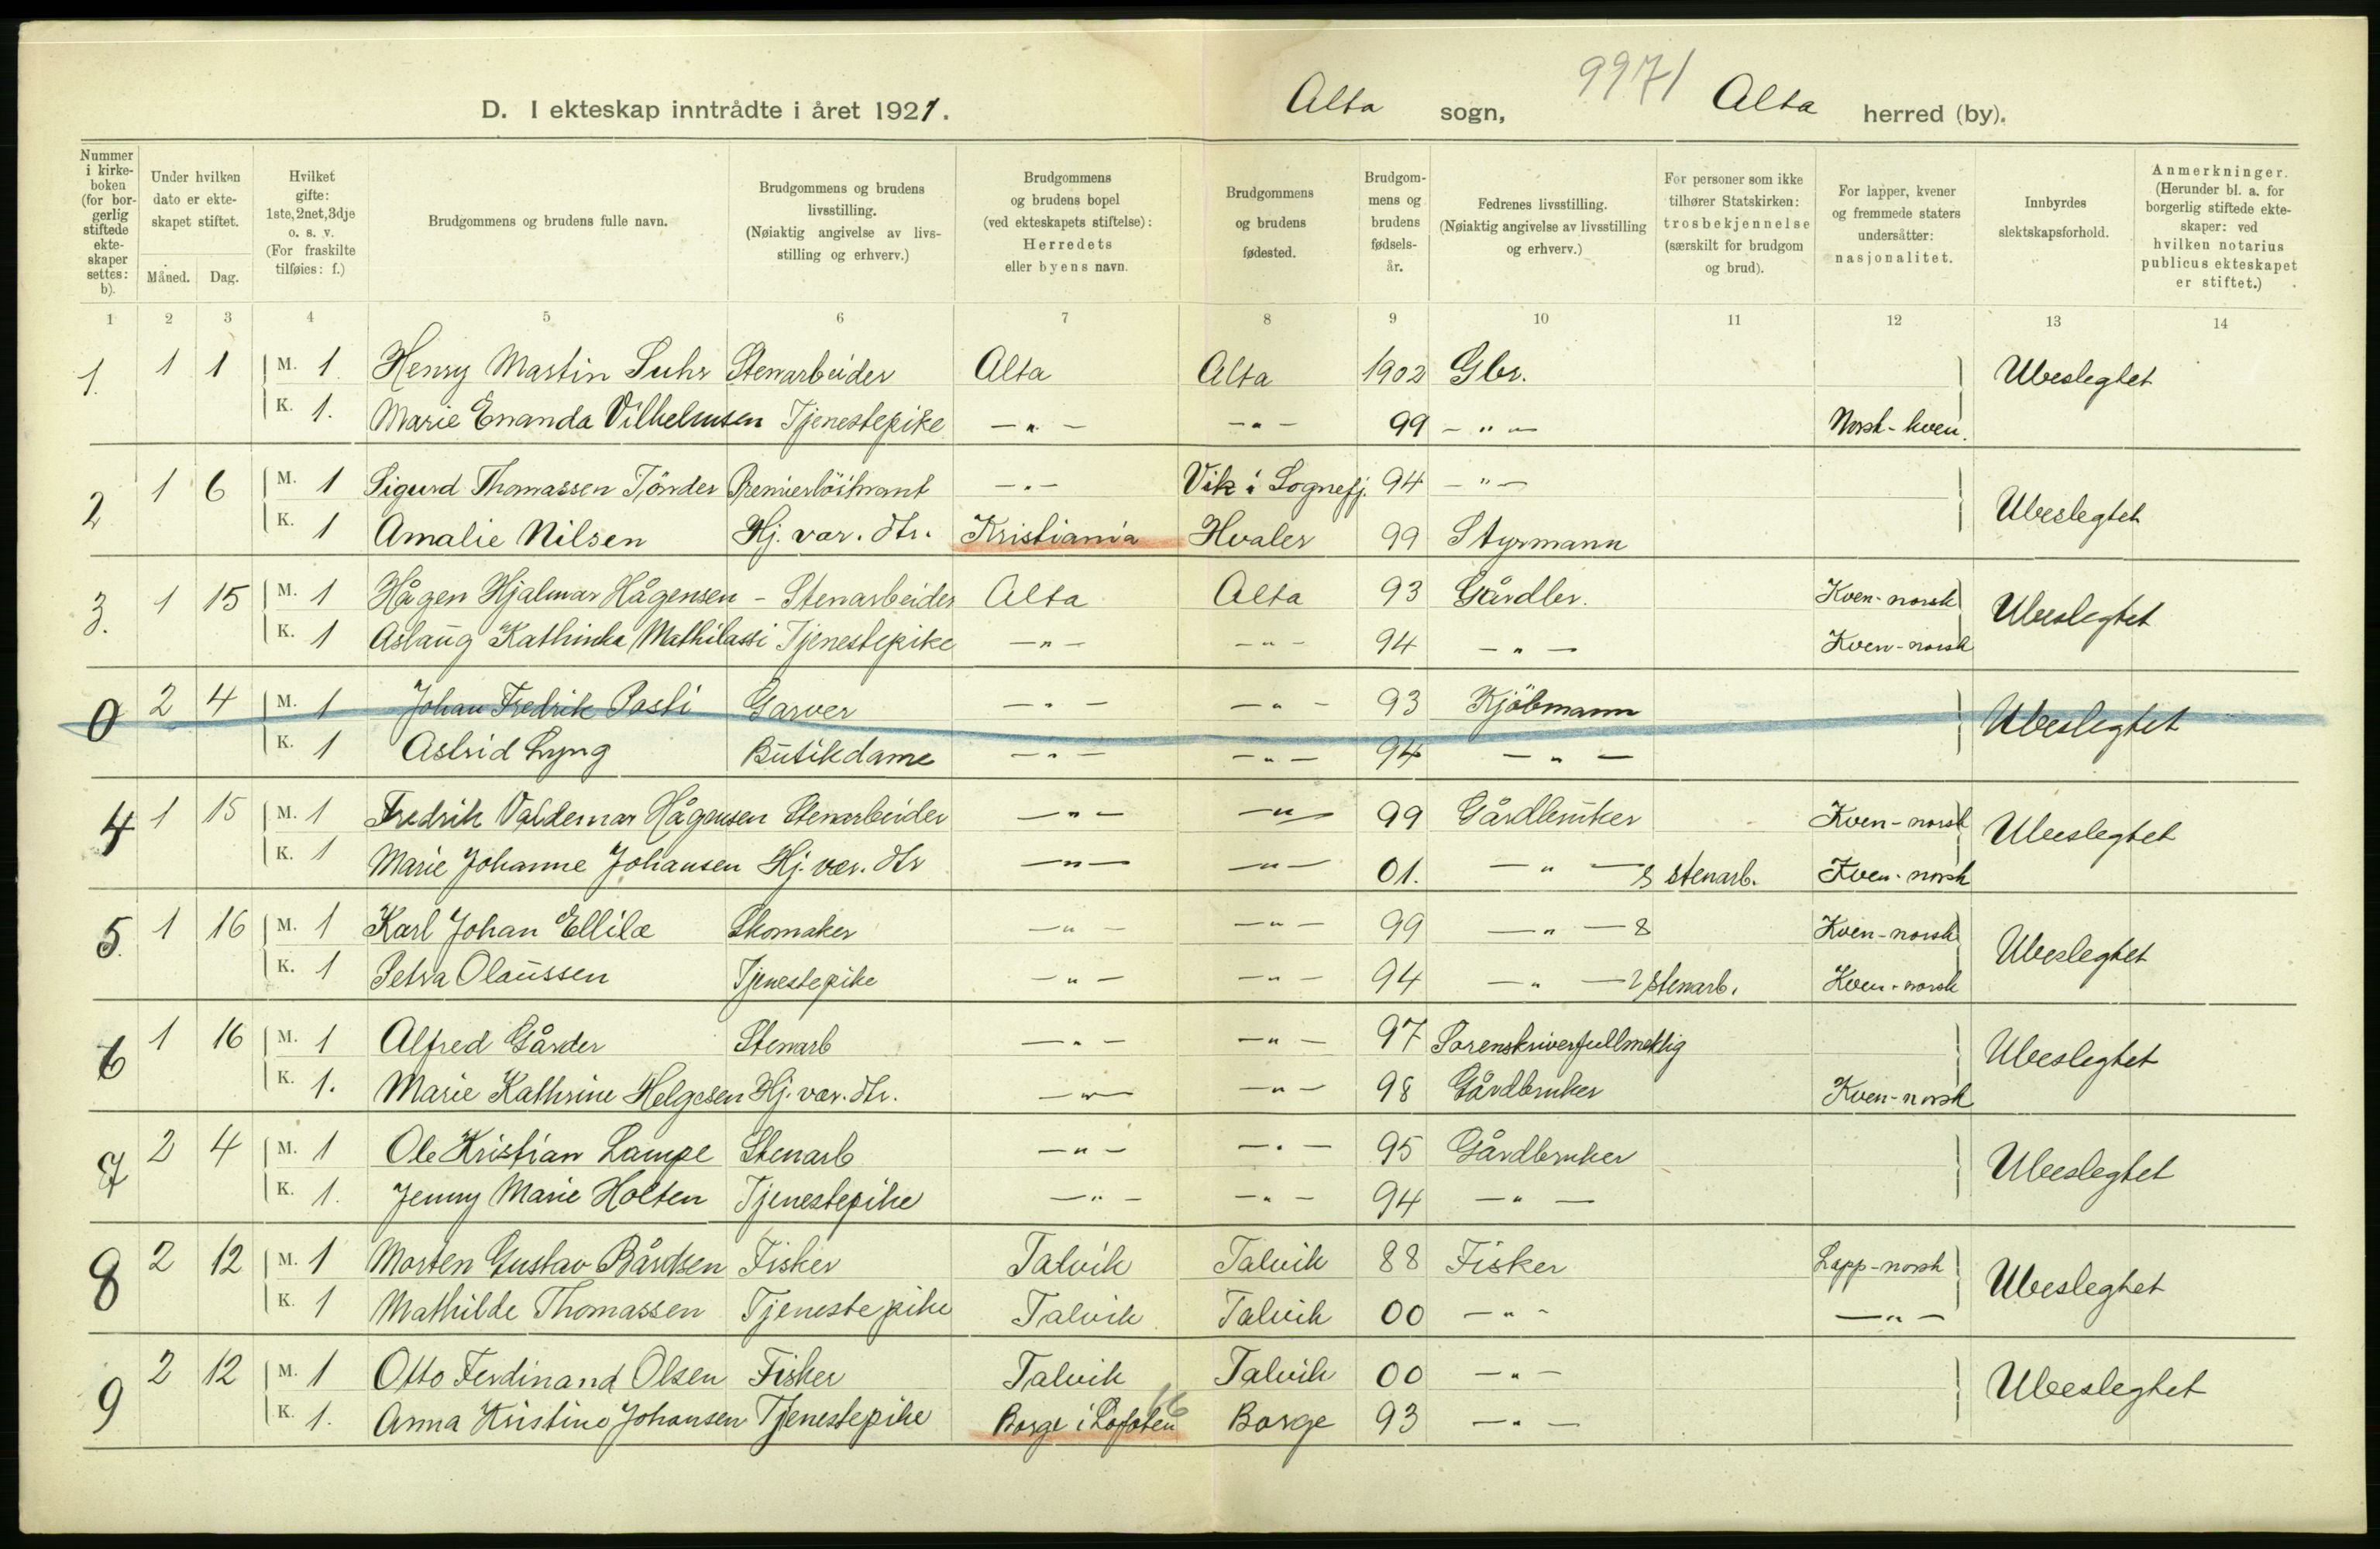 9971
D. I ekteskap inntrådte i året 1921.
Alta sogn, Alta herred (by).
Nummer i kirke-boken (for bor-gerlig stiftede ekte-skaper settes: b).
Under hvilken dato er ekte-skapet stiftet.
Måned. Dag.
Hvilket gifte: 1ste, 2net, 3dje o. s. v. (For fraskilte tilføies: f.)
Brudgommens og brudens fulle navn.
Brudgommens og brudens livsstilling. (Nøiaktig angivelse av livs-stilling og erhverv.)
Brudgommens og brudens bopel (ved ekteskapets stiftelse): Herredets eller byens navn.
Brudgommens og brudens fødested.
Brudgom-mens og brudens fødsels-år.
Fedrenes livsstilling. (Nøiaktig angivelse av livsstilling og erhverv.)
For personer som ikke tilhører Statskirken: trosbekjennelse (særskilt for brudgom og brud).
For lapper, kvener og fremmede staters undersåtter: nasjonalitet.
Innbyrdes slektskapsforhold.
Anmerkninger. (Herunder bl. a. for borgerlig stiftede ekte-skaper: ved hvilken notarius publicus ekteskapet er stiftet.)
1 2 3 4 5 6 7 8 9 10 11 12 13 14
1. 1 1 M. 1 Henry Martin Suhr Stenarbeider Alta Alta 1902 Gbr. Ubeslegtet
K. 1. Marie Enanda Vilhelmsen Tjenestepike — " — — " — 99 — " — Norsk-kven.
2 1 6 M. 1 Sigurd Thomassen Tönder Premierlöitnant — " — Vik i Sognefj. 94 — " — Ubeslegtet
K. 1 Amalie Nilsen Hj. vær. dtr. Kristiania Hvaler 99 Styrmann
3. 1 15 M. 1 Hågen Hjalmar Hågensen - Stenarbeider Alta Alta 93 Gårdbr. Kven-norsk Ubeslegtet
K. 1 Aslaug Kathinka Mathilassi Tjenestepike — " — — " — 94 — " — Kven-norsk
0 2 4 M. 1 Johan Fredrik Pasti Garver — " — — " — 93 Kjöbmann Ubeslegtet
K. 1 Astrid Lyng Butikdame — " — — " — 94 — " —
4 1 15 M. 1 Fredrik Valdemar Hågensen Stenarbeider — " — — " — 99 Gårdbruker Kven-norsk Ubeslegtet
K. 1 Marie Johanne Johansen Hj. vær. dtr — " — — " — 01. — " — & stenarb. Kven-norsk
5. 1 16 M. 1 Karl Johan Ellilæ Skomaker — " — — " — 99 — " — & Kven-norsk Ubeslegtet
K. 1 Petra Olaussen Tjenestepike — " — — " — 94 — " — & stenarb. Kven-norsk
6 1 16 M. 1 Alfred Gårder Stenarb — " — — " — 97 Sorenskriverfullmektig Ubeslegtet
K. 1. Marie Kathrine Helgesen Hj. vær. dtr. — " — — " — 98 Gårdbruker Kven-norsk
7 2 4 M. 1 Ole Kristian Lampe Stenarb — " — — " — 95 Gårdbruker Ubeslegtet
K. 1. Jenny Marie Holten Tjenestepike — " — — " — 94 — " —
8 2 12 M. 1 Morten Gustav Bårdsen Fisker Talvik Talvik 88 Fisker Lapp-norsk Ubeslegtet
K. 1 Mathilde Thomassen Tjenestepike Talvik Talvik 00 — " — — " —
9 2 12 M. 1 Otto Ferdinand Olsen Fisker Talvik Talvik 00 — " — Ubeslegtet
K. 1. Anna Kristine Johansen Tjenestepike Borge i Lofoten Borge 93 — " —